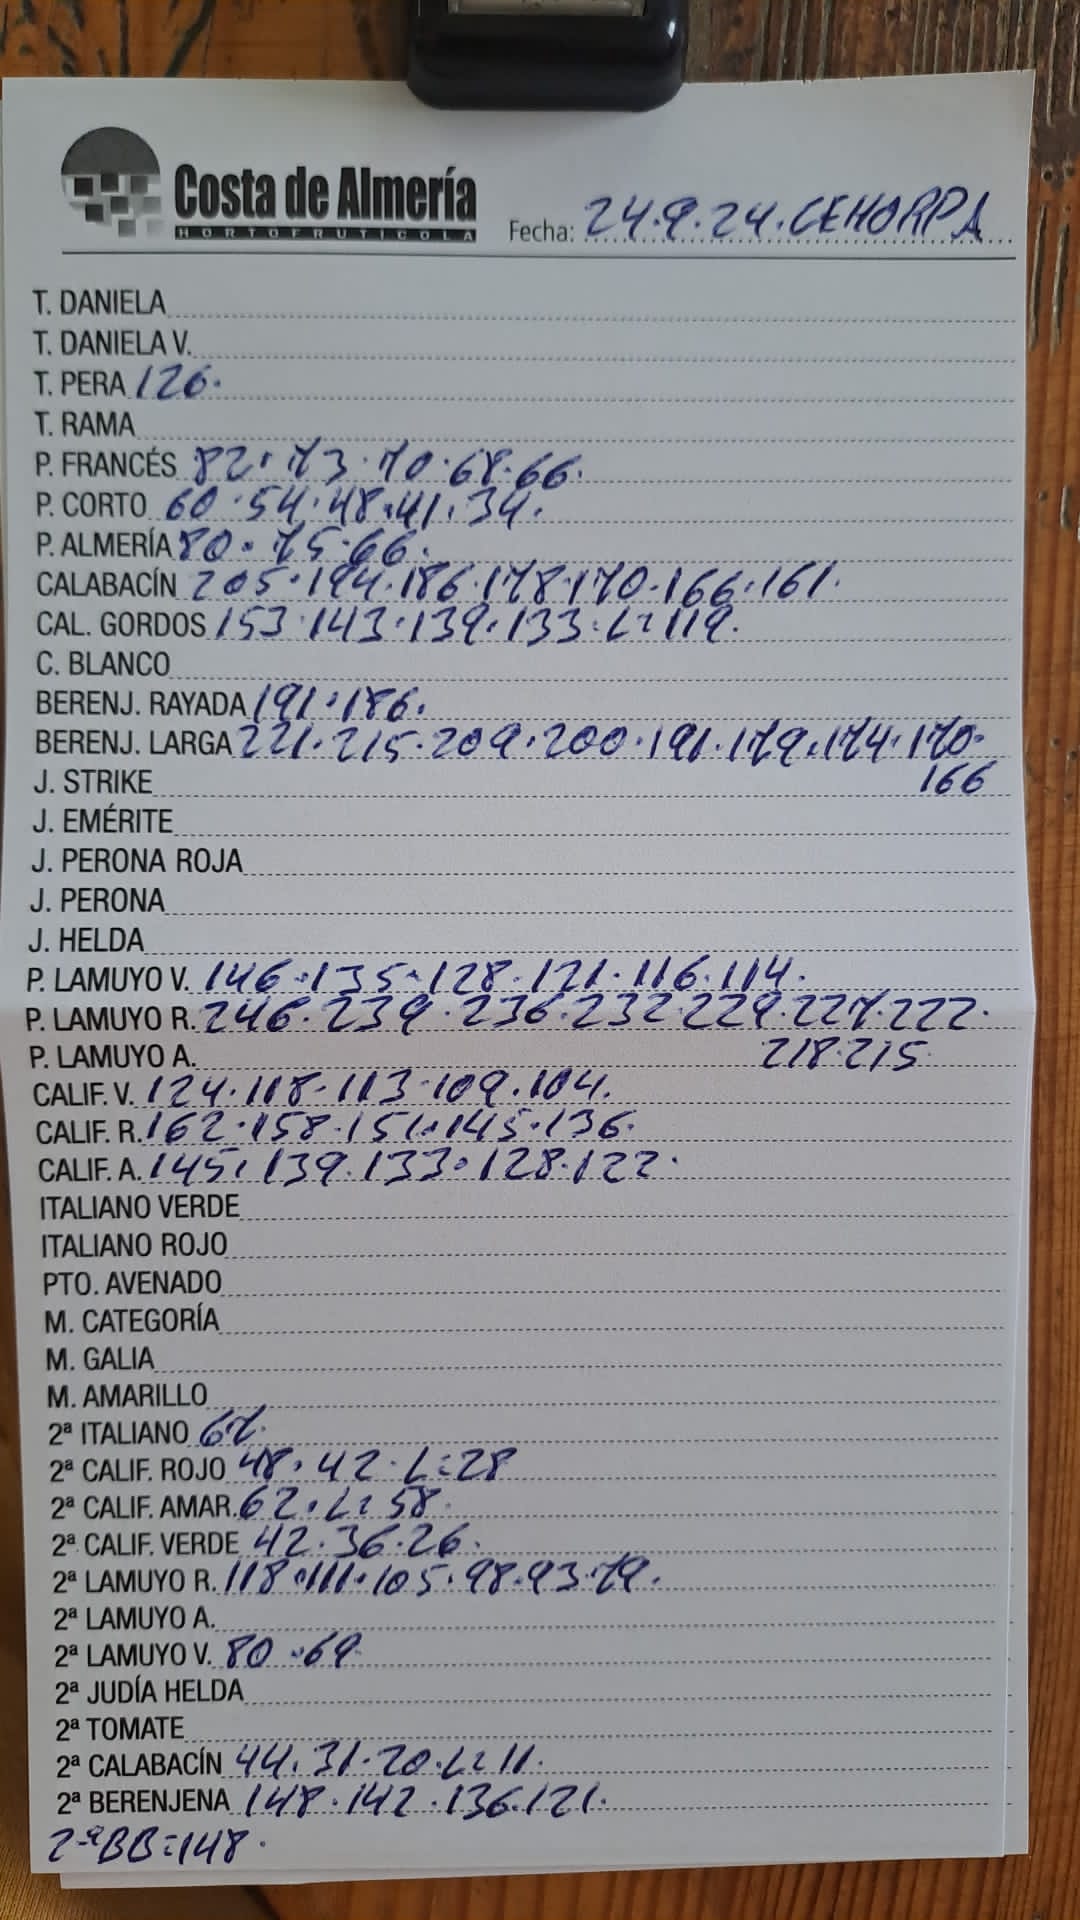 Costa de Almería
HORTOFRUTICOLA
Fecha: 24.9.24.CEHORPA
T. DANIELA
T. DANIELA V.
T. PERA 126.
T. RAMA
P. FRANCÉS 82.73.70.68.66.
P. CORTO 60.54.48.41.34.
P. ALMERÍA 80.75.66.
CALABACÍN 205.194.186.178.170.166.161.
CAL. GORDOS 153.143.139.133.L=119.
C. BLANCO
BERENJ. RAYADA 191.186.
BERENJ. LARGA 221.215.209.200.191.179.174.170.
J. STRIKE 166
J. EMÉRITE
J. PERONA ROJA
J. PERONA
J. HELDA
P. LAMUYO V. 146.135.128.121.116.114.
P. LAMUYO R. 246.239.236.232.229.227.222.
P. LAMUYO A. 218.215.
CALIF. V. 124.118.113.109.104.
CALIF. R. 162.158.151.145.136.
CALIF. A. 145.139.133.128.122.
ITALIANO VERDE
ITALIANO ROJO
PTO. AVENADO
M. CATEGORÍA
M. GALIA
M. AMARILLO
2ª ITALIANO 67.
2ª CALIF. ROJO 48.42.L=28
2ª CALIF. AMAR. 62.L=58.
2ª CALIF. VERDE 42.36.26.
2ª LAMUYO R. 118.111.105.98.93.79.
2ª LAMUYO A.
2ª LAMUYO V. 80.69
2ª JUDÍA HELDA
2ª TOMATE
2ª CALABACÍN 44.31.20.L=11.
2ª BERENJENA 148.142.136.121.
2ªBB=148.